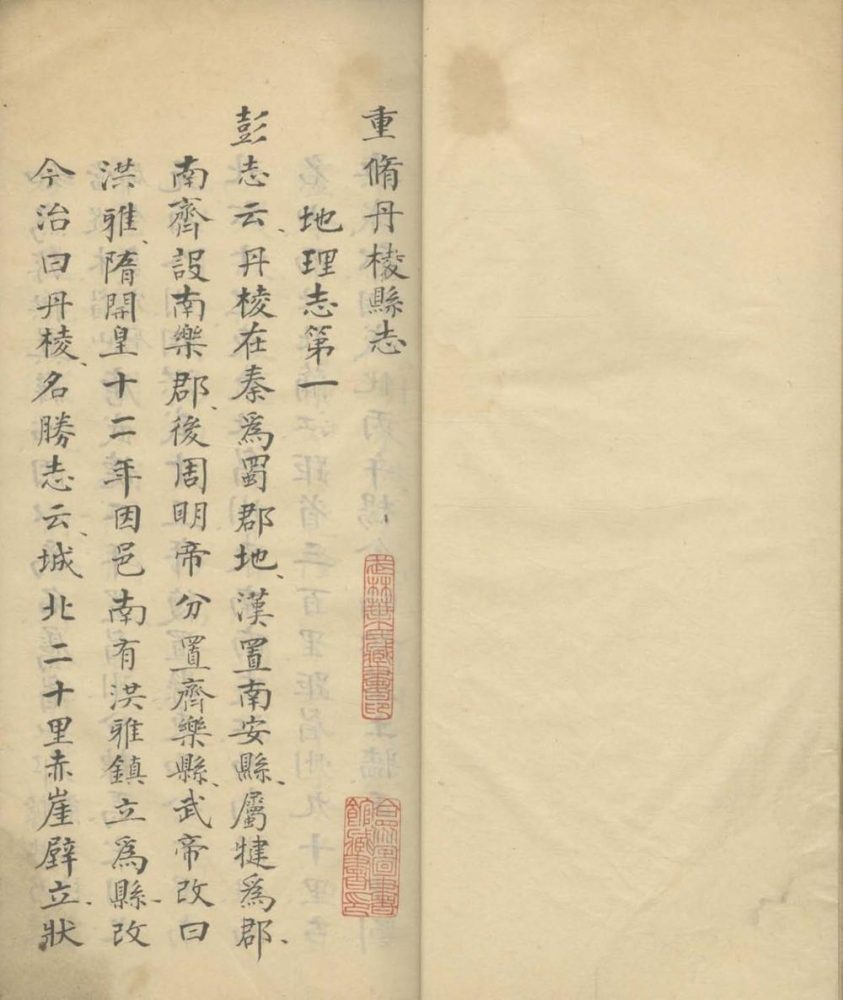 重脩丹棱縣志
地理志第一
彭志云、丹棱在秦爲蜀郡地、漢置南安縣、屬犍爲郡、
南齊設南樂郡、後周明帝分置齊樂縣、武帝改曰
洪雅、隋開皇十二年因邑南有洪雅鎮立爲縣、改
今治曰丹棱、名勝志云、城北二十里赤崖壁立、狀
藏書印
圖書
館藏書